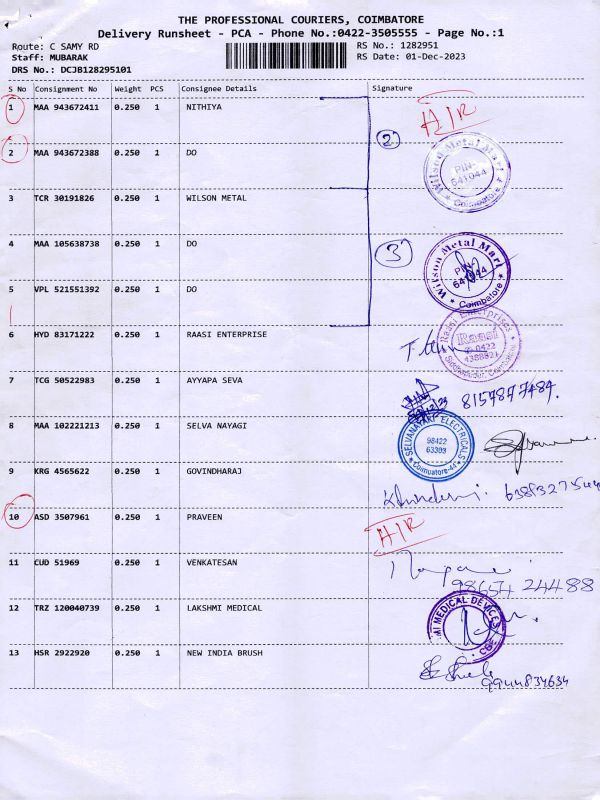 THE PROFESSIONAL COURIERS, COIMBATORE
Delivery Runsheet - PCA - Phone No.:0422-3505555 - Page No.:1
Route: C SAMY RD RS No.: 1282951
Staff: MUBARAK RS Date: 01-Dec-2023
DRS No.: DCJB128295101
S No Consignment No Weight PCS Consignee Details Signature
1 MAA 943672411 0.250 1 NITHIYA AIR
2 MAA 943672388 0.250 1 DO 2
Wilson Metal Mart PIN: 641044 Coimbatore
3 TCR 30191826 0.250 1 WILSON METAL
4 MAA 105638738 0.250 1 DO 3
Wilson Metal Mart PIN: 641044 Coimbatore
5 VPL 521551392 0.250 1 DO
6 HYD 83171222 0.250 1 RAASI ENTERPRISE
Raasi Enterprises Raasi 0422 4388821 Siddhapudur, Coimbatore
7 TCG 50522983 0.250 1 AYYAPA SEVA 8157877487.
8 MAA 102221213 0.250 1 SELVA NAYAGI
SELVANAYAKI ELECTRICALS 98422 63303 Coimbatore-44
9 KRG 4565622 0.250 1 GOVINDHARAJ
10 ASD 3507961 0.250 1 PRAVEEN AIR
11 CUD 51969 0.250 1 VENKATESAN
98654 24488
12 TRZ 120040739 0.250 1 LAKSHMI MEDICAL
MI MEDICAL DEVICES CBE
13 HSR 2922920 0.250 1 NEW INDIA BRUSH
9944834634